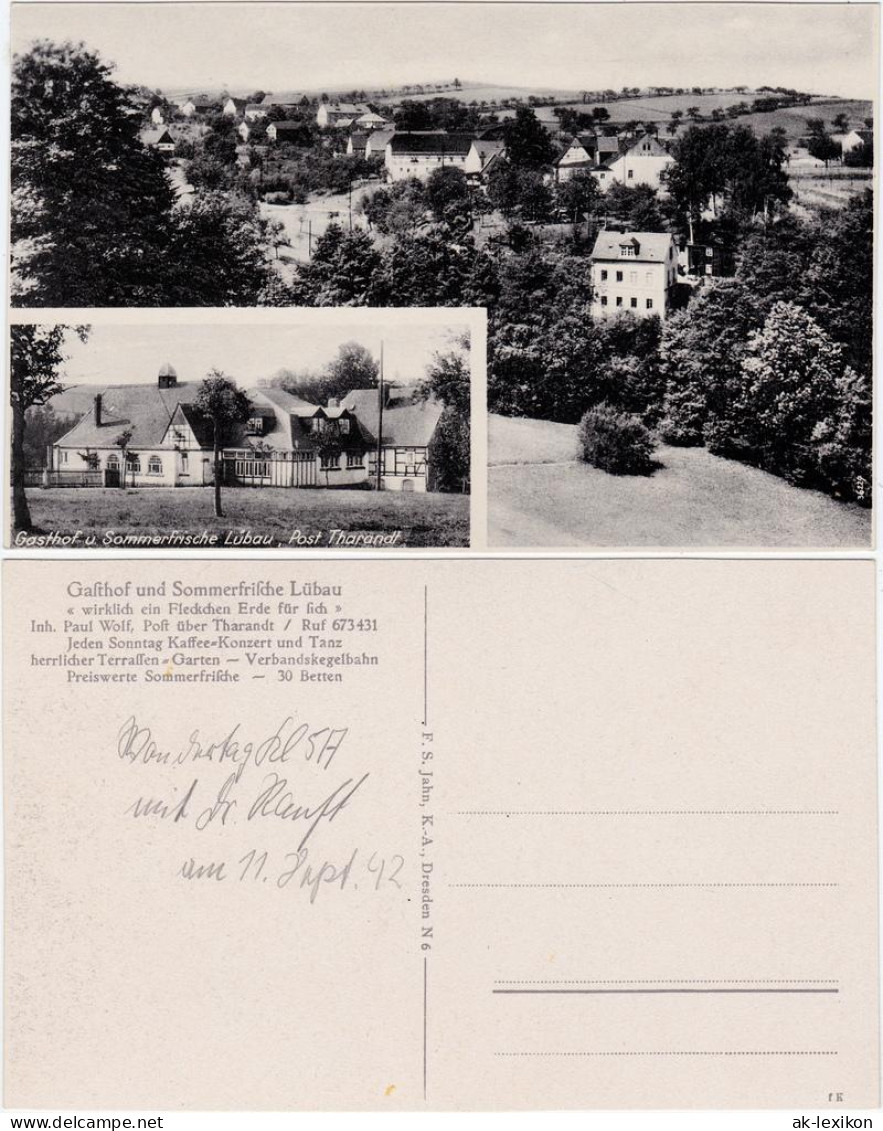 36229
Gasthof u. Sommerfrische Lübau, Post Tharandt
Gaſthof und Sommerfriſche Lübau
« wirklich ein Fleckchen Erde für ſich »
Inh. Paul Wolf, Poſt über Tharandt / Ruf 673431
Jeden Sonntag Kaffee=Konzert und Tanz
herrlicher Terraſſen=Garten — Verbandskegelbahn
Preiswerte Sommerfriſche — 30 Betten
Wandertag Kl 5A
mit Dr Hanft
am 11. Sept. 42
F. S. Jahn, K.-A., Dresden N 6
f K
www.delcampe.net
ak-lexikon